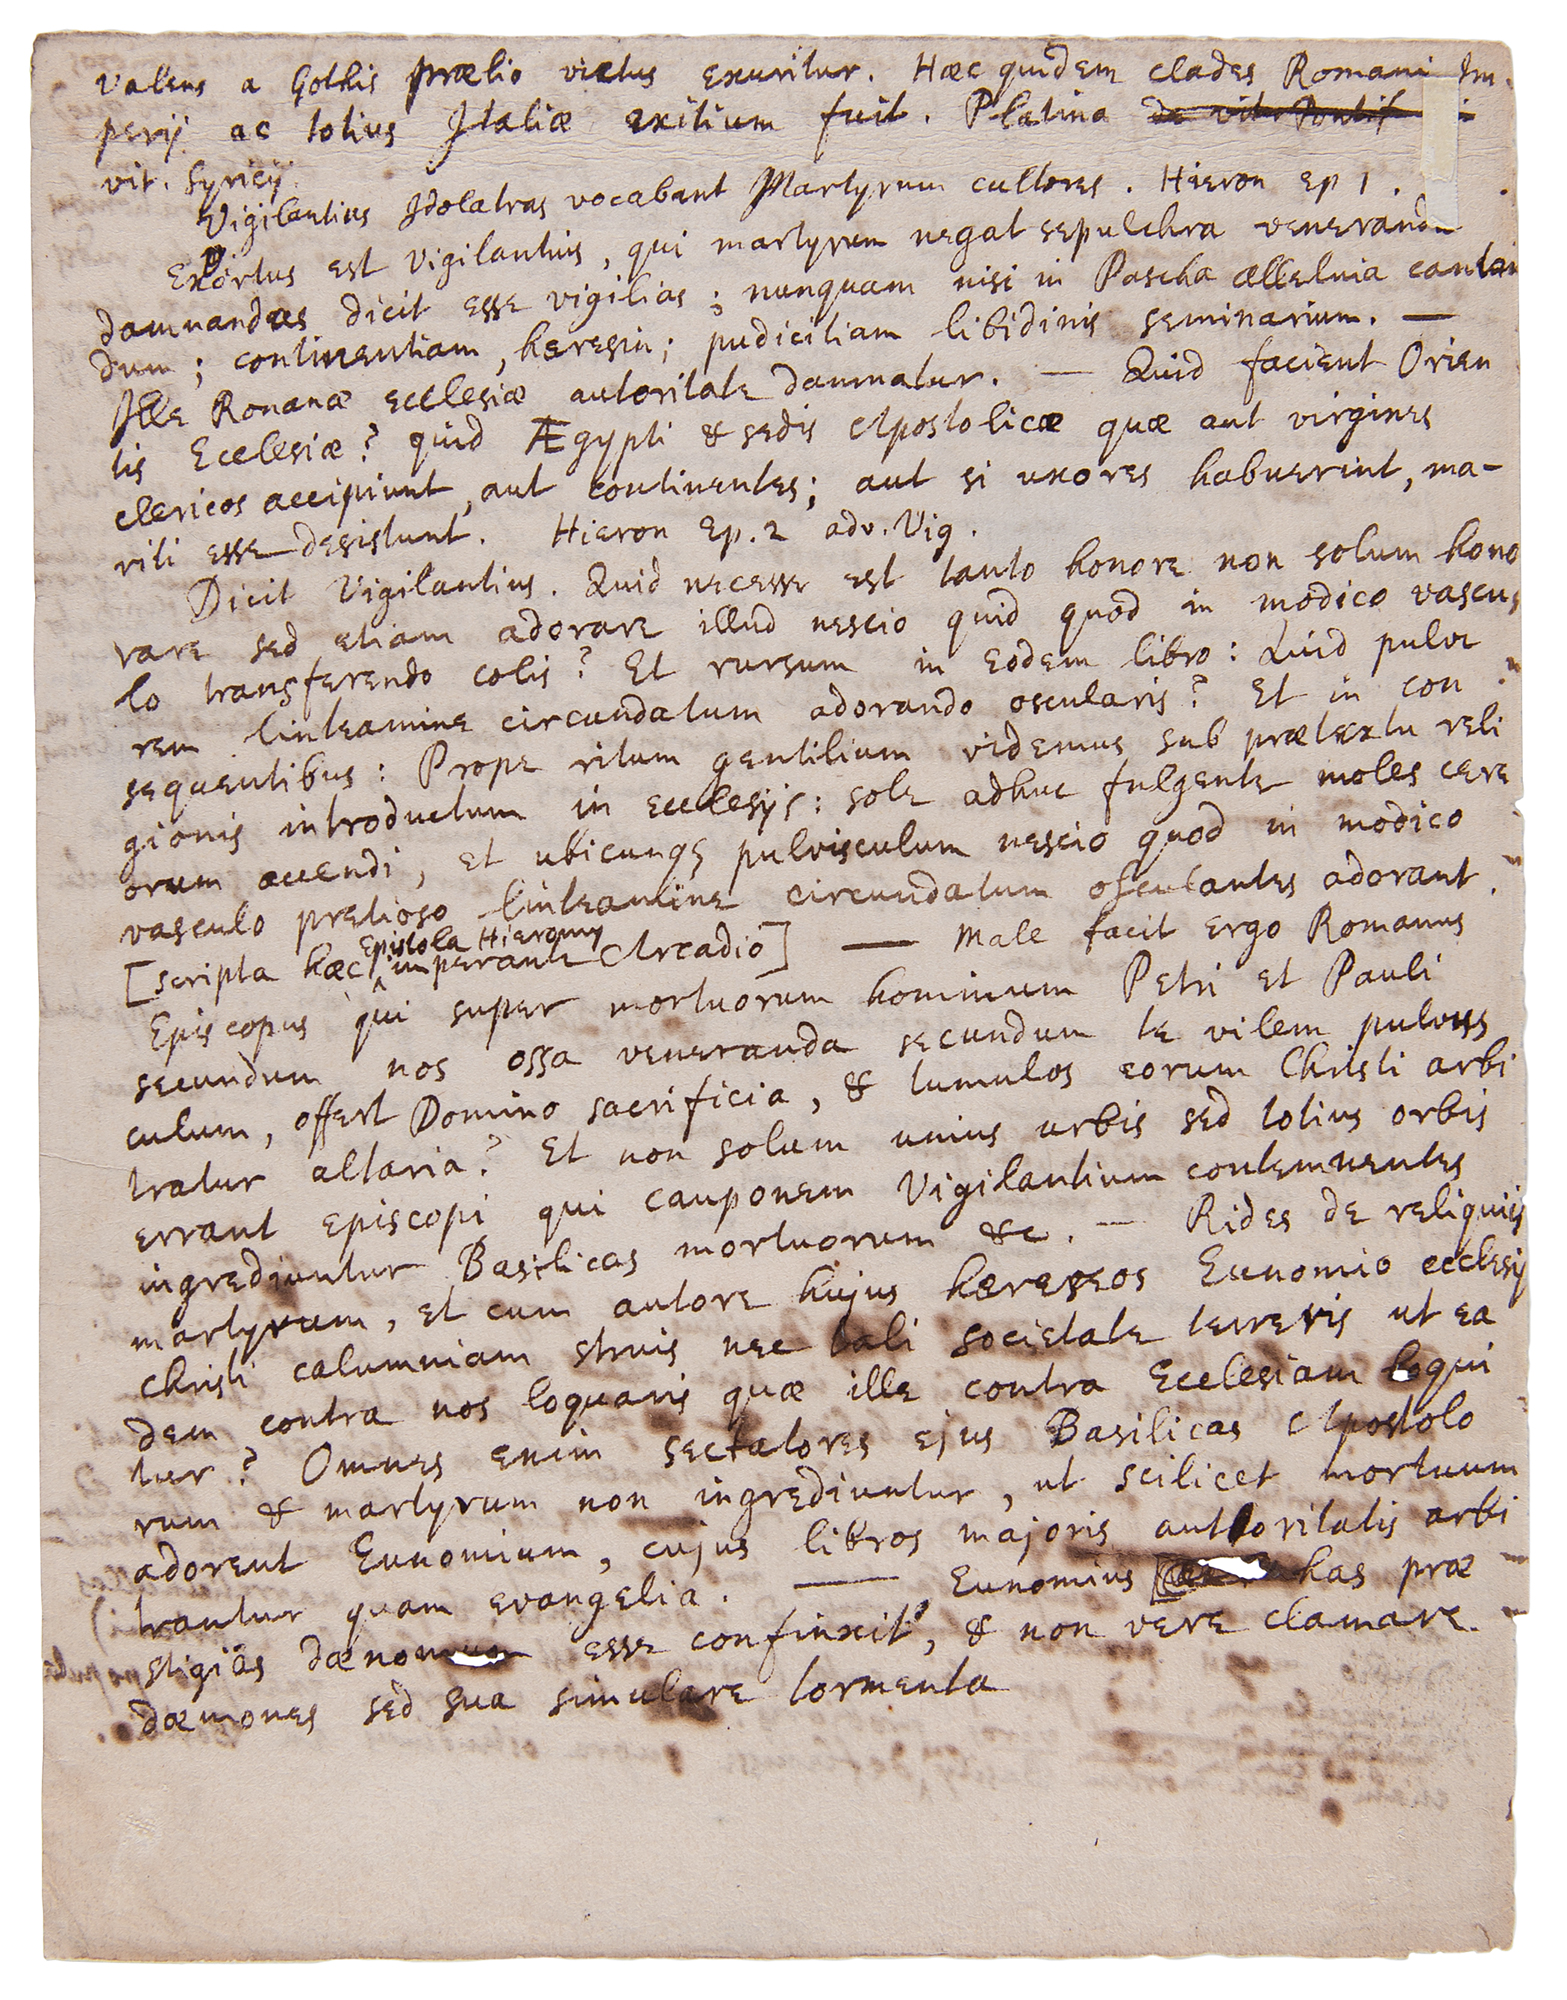 Valens a Gothis prælio victus exuritur. Hæc quidem clades Romani Im-
perij ac totius Italiæ exitium fuit. Platina de vit. Pontif in
vit. Syricij.
Vigilantius Idolatras vocabant Martyrum cultores. Hieron Ep 1.
Exortus est Vigilantius, qui martyrum negat sepulchra veneranda
damnandas dicit esse vigilias; nunquam nisi in Pascha alleluia cantan
dum; continentiam, heresin; pudicitiam libidinis seminarium. —
Ille Romanæ ecclesiæ autoritate damnatur. — Quid facient Orien
tis Ecclesiæ? quid Ægypti & sedis Apostolicæ quæ aut virgines
clericos accipiunt, aut continentes; aut si uxores habuerint, ma-
riti esse desistunt. Hieron Ep. 2 adv. Vig.
Dicit Vigilantius. Quid necesse est tanto honore non solum hono
rare sed etiam adorare illud nescio quid quod in modico vascu
lo transferendo colis? Et rursum in eodem libro: Quid pulve
rem linteamine circundatum adorando oscularis? Et in con
sequentibus: Prope ritum gentilium videmus sub prætextu reli
gionis introductum in ecclesijs: sole adhuc fulgente moles cere
orum accendi, et ubicunqȝ pulvisculum nescio quod in modico
vasculo pretioso linteamine circundatum osculantes adorant.
Epistola Hieronny
[scripta hæc ^ imperante Arcadio] — Male facit ergo Romanus
Episcopus qui super mortuorum hominum Petri et Pauli
secundum nos ossa veneranda secundum te vilem pulvis
culum, offert Domino sacrificia, & tumulos eorum Christi arbi
tratur altaria? Et non solum unius urbis sed totius orbis
errant episcopi qui cauponem Vigilantium contemnentes
ingrediuntur Basilicas mortuorum &c. — Rides de reliquijs
martyrum, et cum autore hujus hæreseos Eunomio ecclesijs
Christi calumniam struis nec tali societate terreris ut ea
dem contra nos loquaris quæ ille contra Ecclesiam loqui
tur? Omnes enim sectatores ejus Basilicas Apostolo
rum & martyrum non ingrediuntur, ut scilicet mortuum
adorent Eunomium, cujus libros majoris authoritatis arbi
trantur quam evangelia. — Eunomius has præ
stigias dæmonum esse confinxit, & non vere clamare
dæmones sed sua simulare tormenta